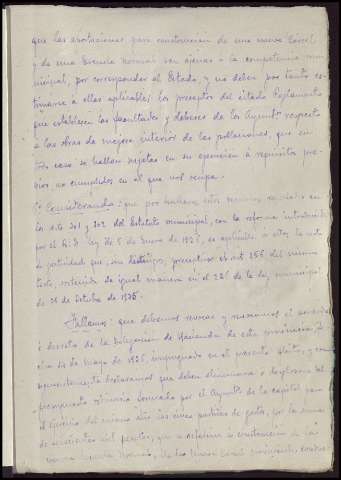 que las aportaciones para construcción de una nueva Cárcel
y de una Escuela normal son ajenas a la competencia mu-
nicipal, por corresponder al Estado, y no deben por tanto es-
timarse a ellas aplicables los preceptos del citado Reglamento
que establecen las facultades y deberes de los Ayuntos respecto
a las obras de mejora interior de las poblaciones, que en
su caso se hallan sujetas en su ejecución a requisitos pre-
vios, no cumplidos en el que nos ocupa.
Considerando: que por
los arts 301 y 302 del Estatuto municipal, con la reforma introducida
por el R. D. ley de 5 de Enero de 1926, es aplicable a estos la nota
de gratuidad que, sin distingo, preceptúa el art 256 del mismo
texto, contenida de igual manera en el 226 de la ley municipal
de 31 de Octubre de 1935.
Fallamos: que debemos revocar y revocamos el acuerdo
o decreto de la Delegación de Hacienda de esta provincia, fe-
cha 24 de Mayo de 1935, impugnado en el presente pleito, y con-
secuentemente declaramos que deben eliminarse del
presupuesto ordinario formado por el Ayunto de la capital para
el ejercicio del mismo año las cinco partidas de gastos, por la suma
de mil pesetas, que se
nueva Escuela Normal,